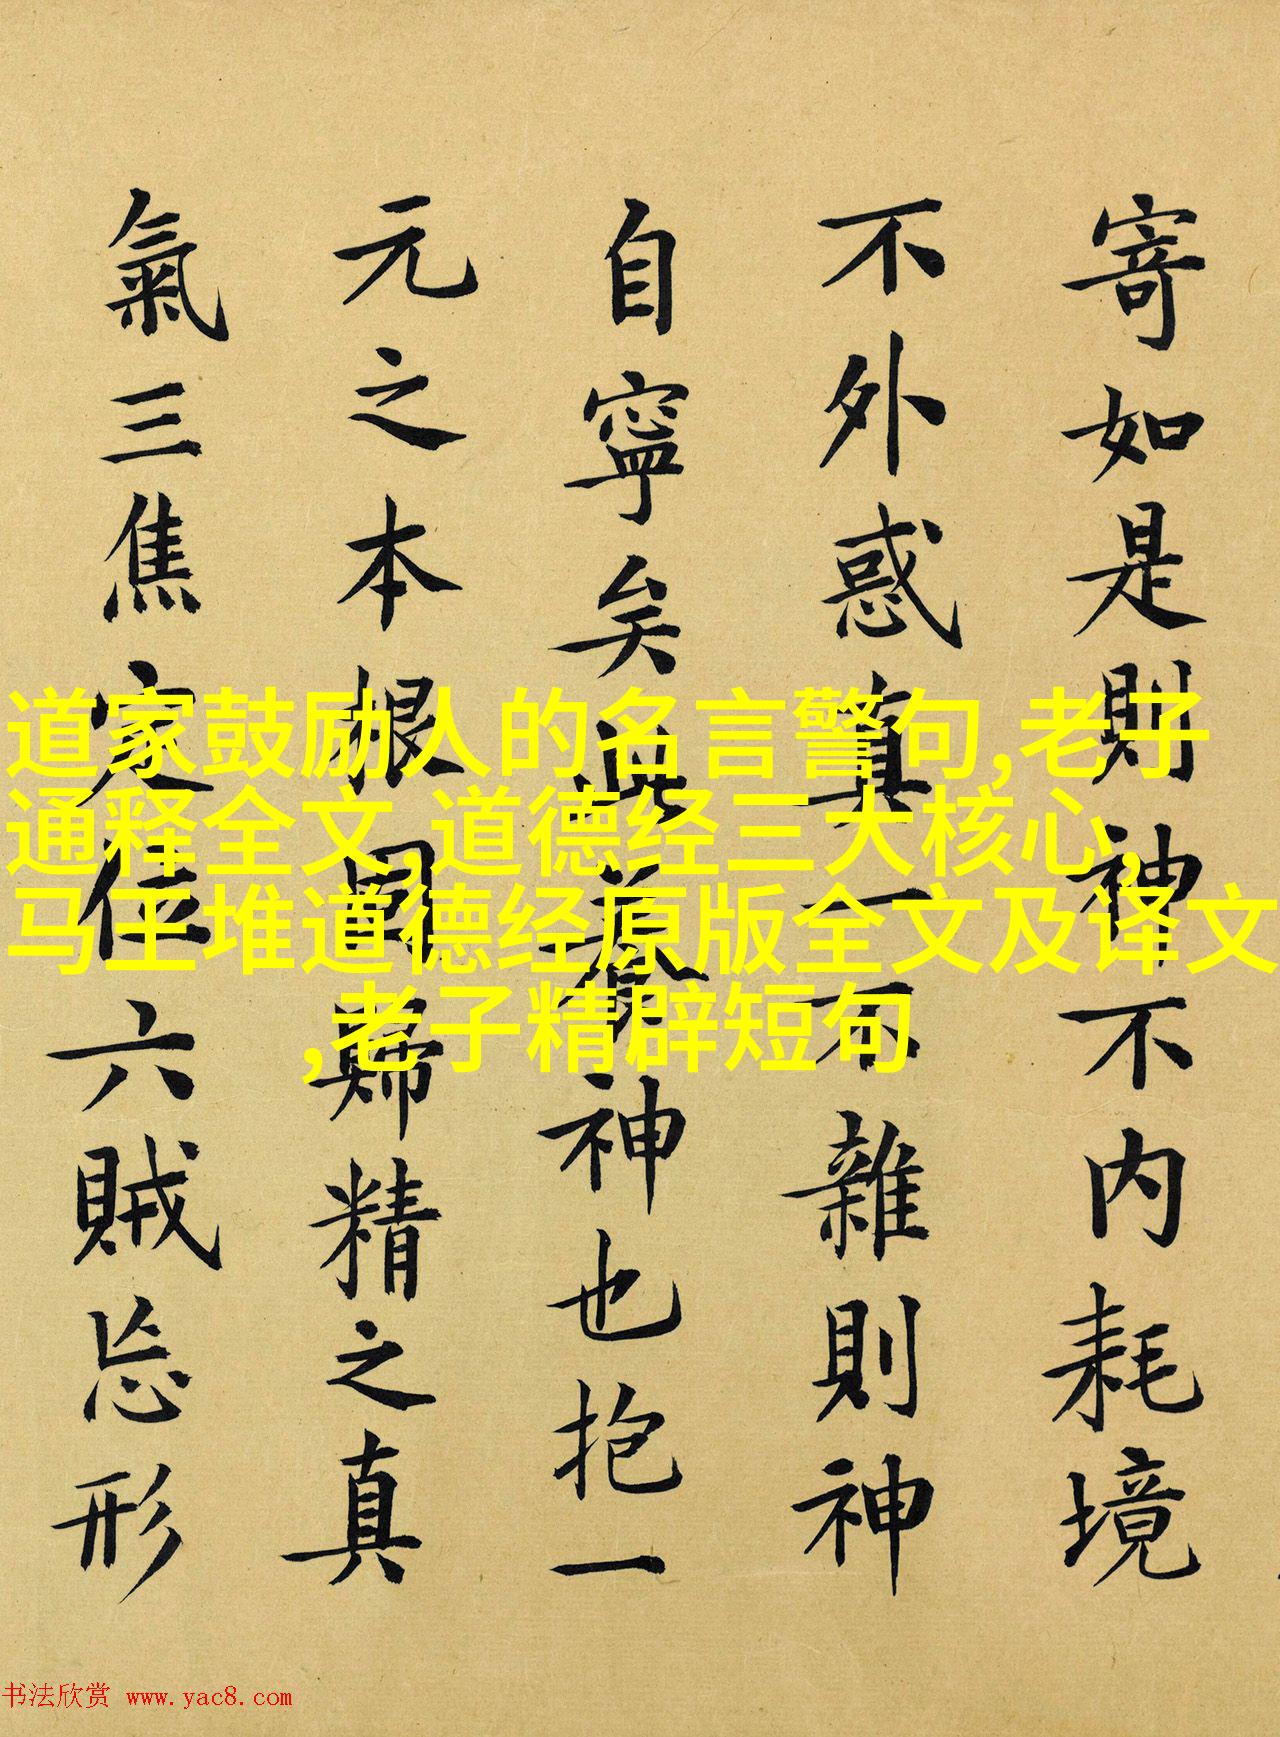 寄如是則神不内耗境
不外惑真一不雜則神
自寧矣此養神也抱一
元之本根固歸精之真
氣三焦定位六賊忘形
道家鼓励人的名言警句,老子
通释全文,道德经三大核心,
马王堆道德经原版全文及译文
,老子精辟短句
书法欣赏 www.yac8.com